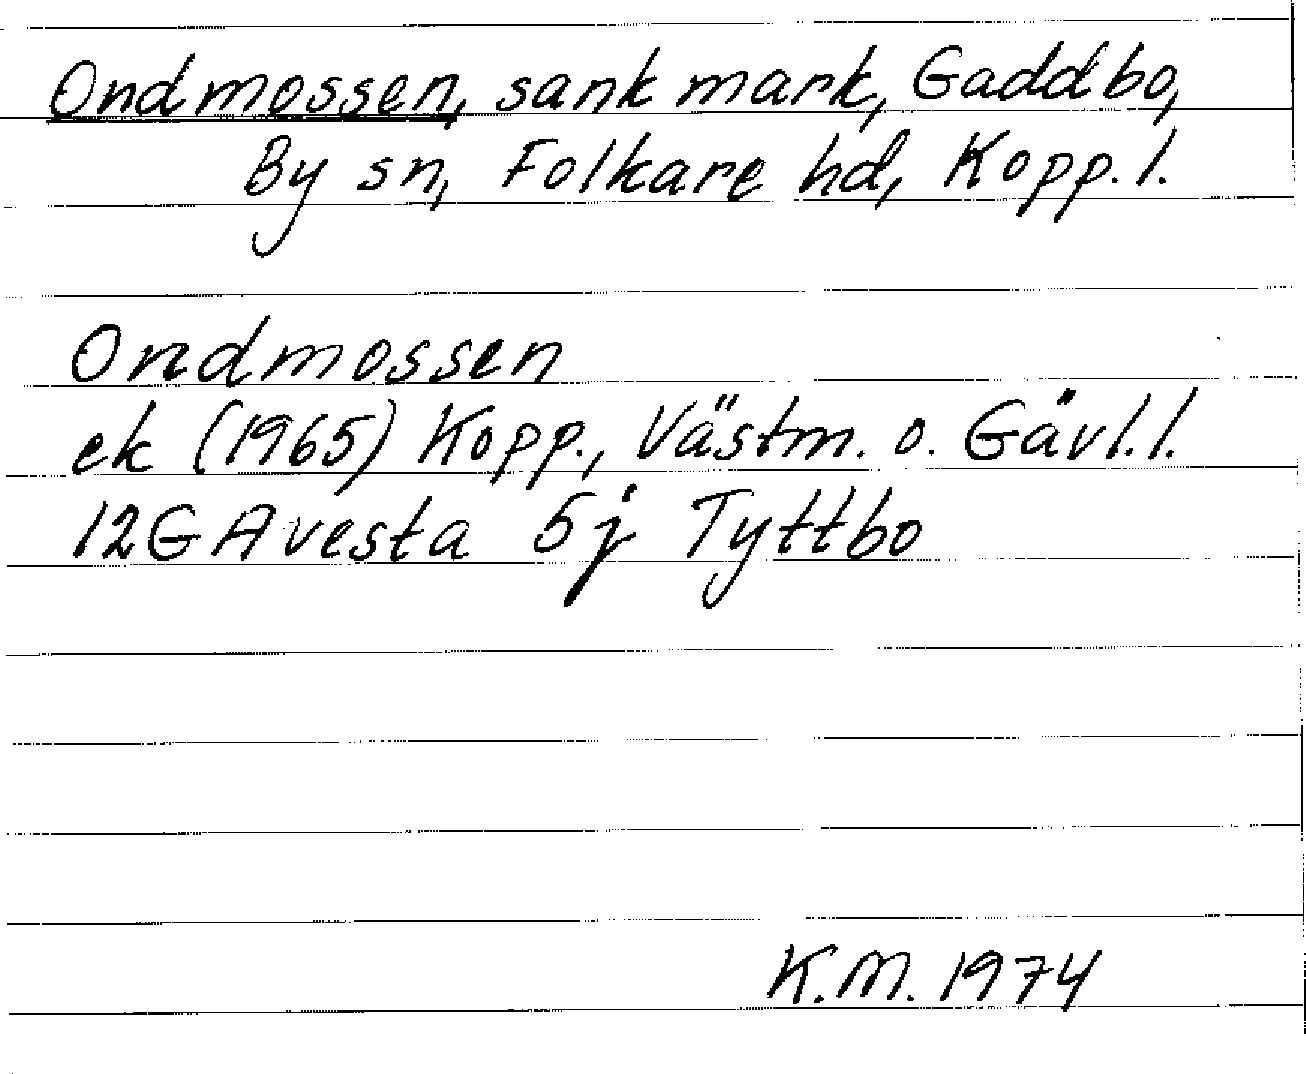 Ondmossen, sank mark, Gaddbo,
By sn, Folkare hd, Kopp. l.
Ondmossen
ek (1965) Kopp., Västm. o. Gävl. l.
12G Avesta 5j Tyttbo
K.M. 1974